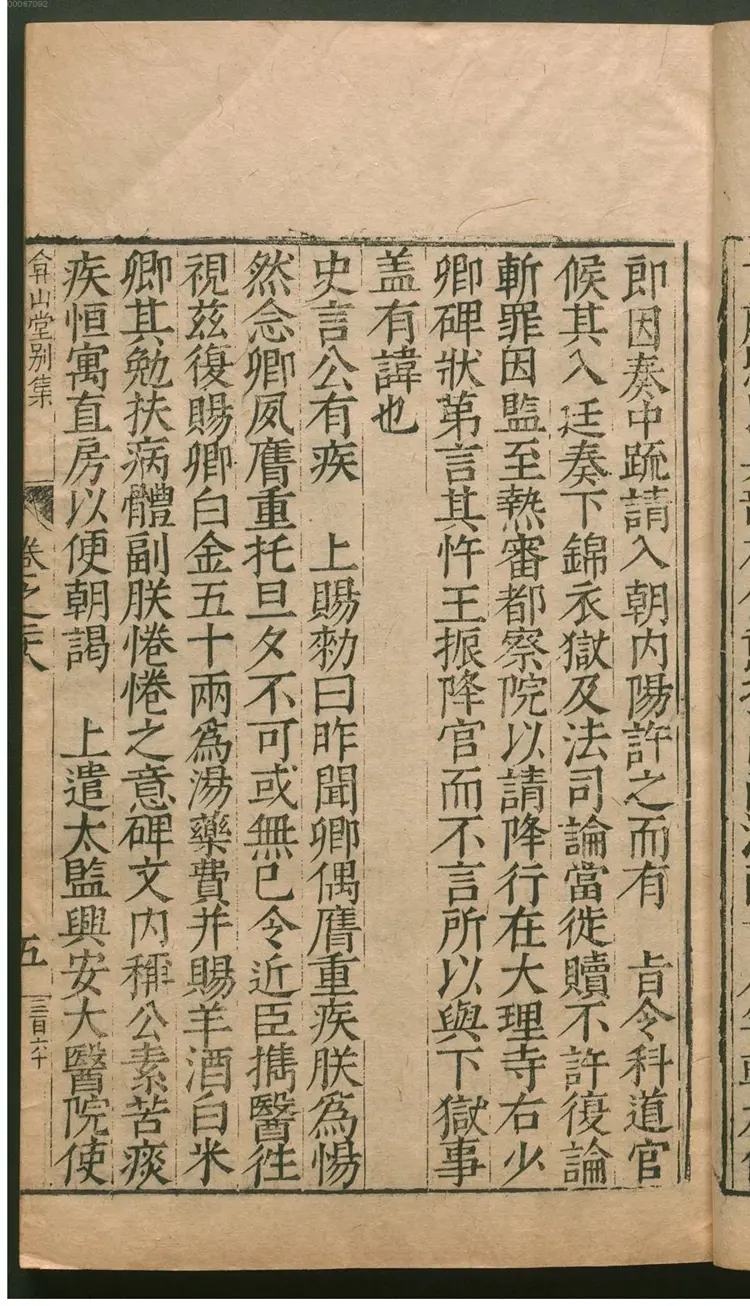 00067092
即因奏中䟽請入朝内陽許之而有　㫖令科道官
候其入廷奏下錦衣獄及法司論當徙贖不許復論
斬罪因監至熱審都察院以請降行在大理寺右少
卿碑狀第言其忤王振降官而不言所以與下獄事
盖有諱也
史言公有疾　上賜勑曰昨聞卿偶膺重疾朕爲惕
然念卿夙膺重托旦夕不可或無已令近臣擕醫徃
視兹復賜卿白金五十兩爲湯藥費并賜羊酒白米
卿其勉扶病體副朕惓惓之意碑文内稱公素苦痰
疾恒寓直房以便朝謁　上遣太監興安大醫院使
弇山堂别集
卷之
五
三百六十